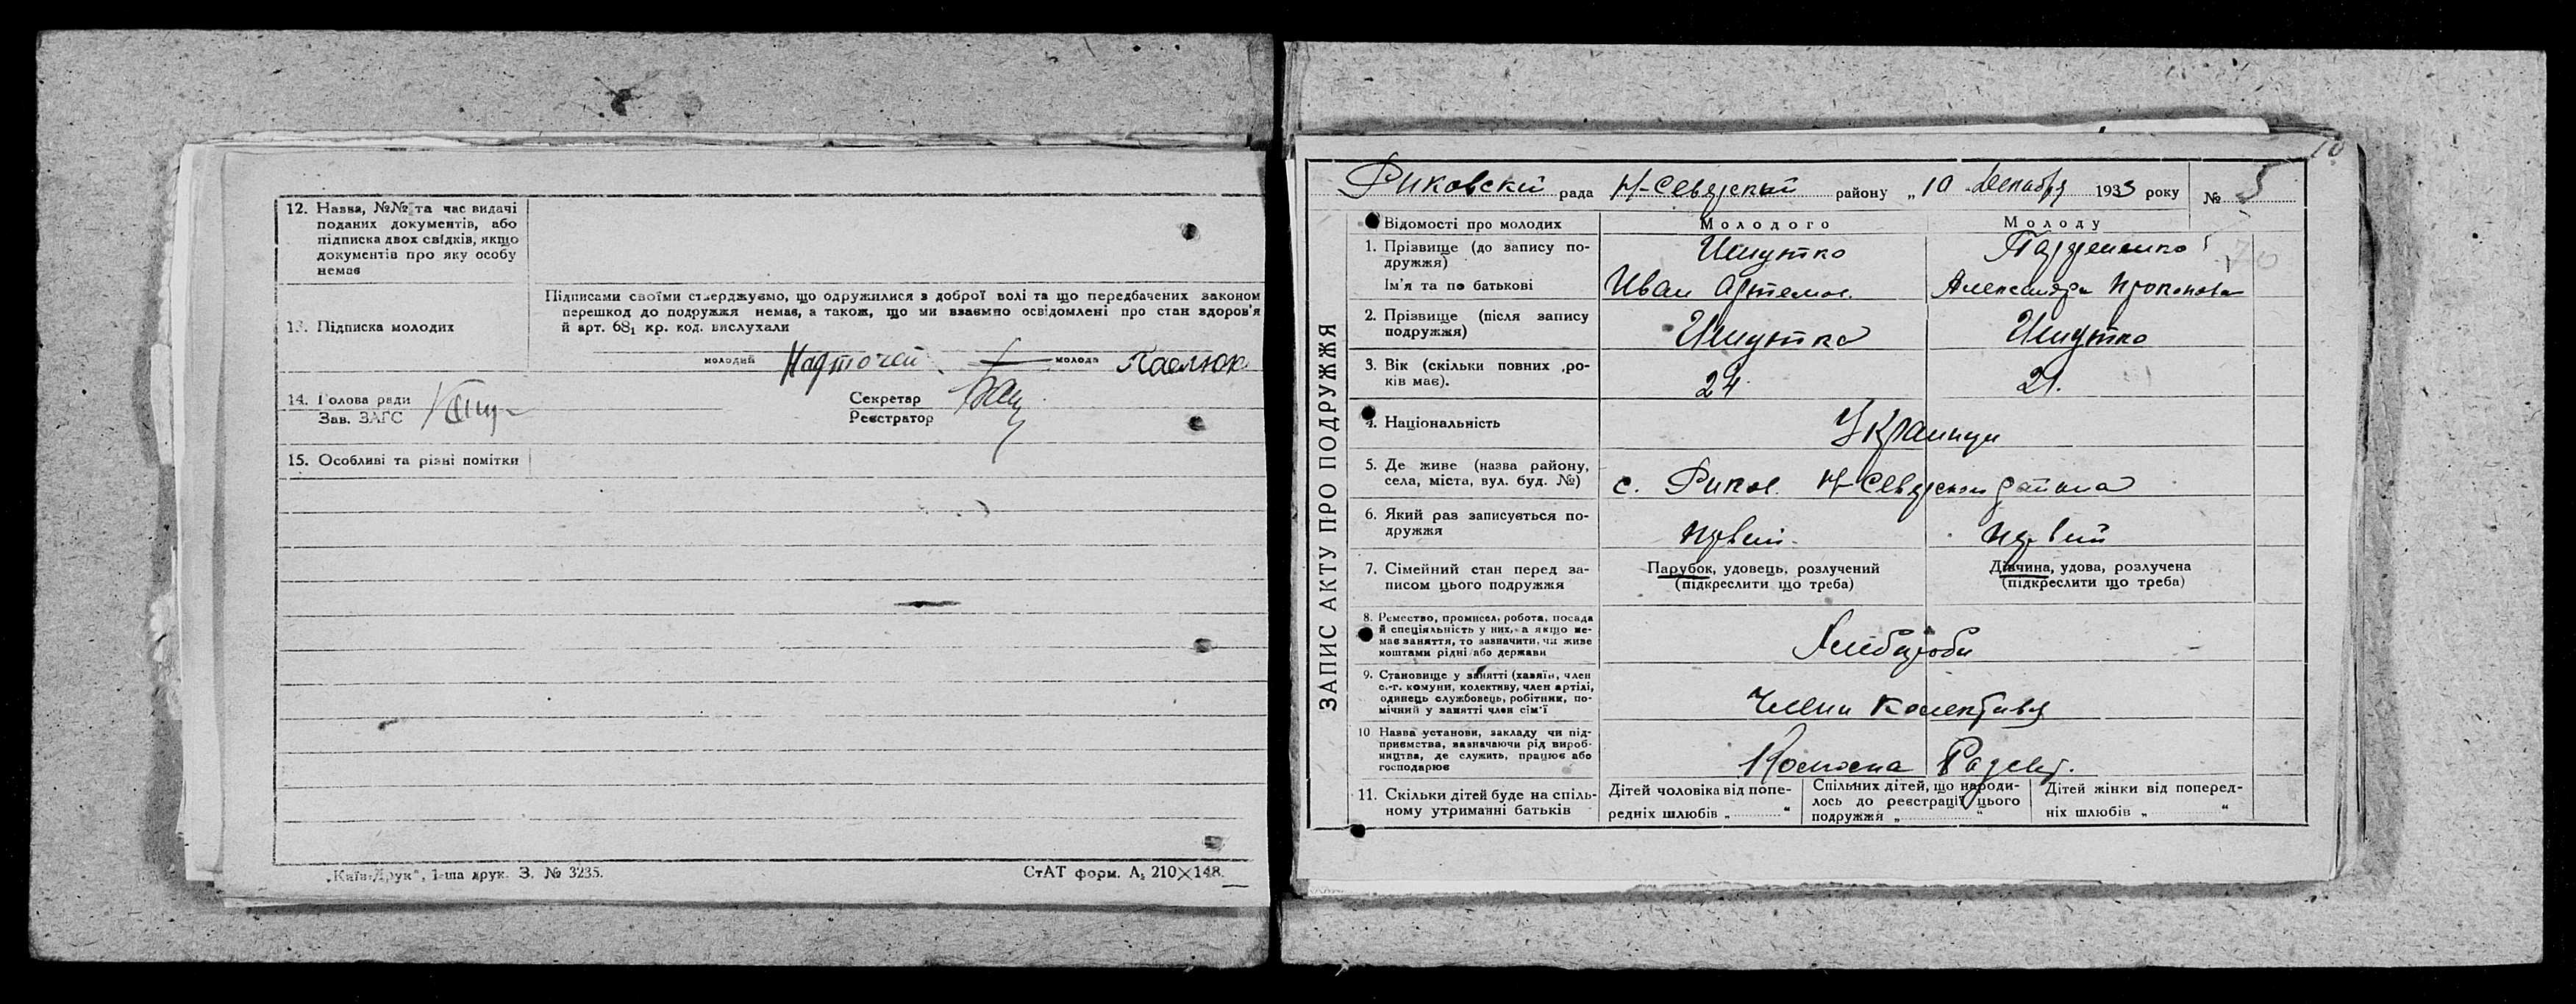 12. Назва, №№ та час видачі
поданих документів, або
підписка двох свідків, якщо
документів про яку особу
немає
Підписами своїми стверджуємо, що одружилися з доброї волі та що передбачених законом
перешкод до подружжя немає, а також, що ми взаємно освідомлені про стан здоров'я
й арт. 68₁ кр. код. вислухали
13. Підписка молодих
молодий Надточей молода Павлюк
14. Голова ради
Зав. ЗАГС
Секретар
Реєстратор
15. Особливі та різні помітки
„Київ-Друк", 1-ша друк. З. № 3235.
СтАТ форм. А₅ 210×148.
10
Риковскй рада Н-Севярский району „10 Декабря 1933 року № 5
ЗАПИС АКТУ ПРО ПОДРУЖЖЯ
Відомості про молодих Молодого Молоду
1. Прізвище (до запису подружжя)
Ім'я та по батькові
Ишутко
Иван Артемов.
Александра
2. Прізвище (після запису
подружжя)
Ишутко Ишутко
3. Вік (скільки повних ро-
ків має).
24 21.
4. Національність
Украинци
5. Де живе (назва району,
села, міста, вул. буд. №)
с. Риков. Н-Севярского района
6. Який раз записується по-
дружжя
7. Сімейний стан перед за-
писом цього подружжя
Парубок, удовець, розлучений
(підкреслити що треба)
Дівчина, удова, розлучена
(підкреслити що треба)
8. Ремество, промисел, робота, посада
й спеціяльність у них, а якщо не-
має заняття, то зазначити, чи живе
коштами рідні або держави
Хлібороби
9. Становище у занятті (хазяїн, член
с.-г. комуни, колективу, член артілі,
одинець службовець, робітник, по-
мічний у занятті член сім'ї
Члени колективу
10 Назва установи, закладу чи під-
приємства, зазначаючи рід вироб-
ництва, де служить, працює або
господарює
11. Скільки дітей буде на спіль-
ному утриманні батьків
Дітей чоловіка від попе-
редніх шлюбів „ "
Спільних дітей, що народи-
лось до реєстрації цього
подружжя „ "
Дітей жінки від поперед-
ніх шлюбів „ "